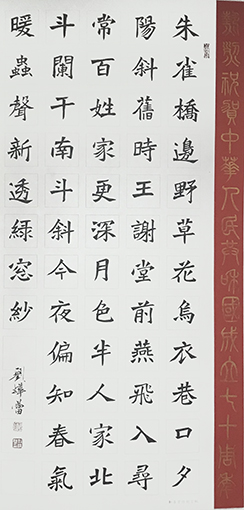 熱烈祝賀中華人民共和國成立七十周年
朱雀橋邊野草花烏衣巷口夕
陽斜舊時王謝堂前燕飛入尋
常百姓家更深月色半人家北
斗闌干南斗斜今夜偏知春氣
暖蟲聲新透綠窓紗